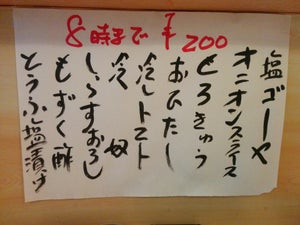 8時まで ¥200
塩ゴーヤ
オニオンスライス
どろきゅう
おひたし
冷しトマト
冷奴
しらすおろし
もずく酢
とうふ塩漬け